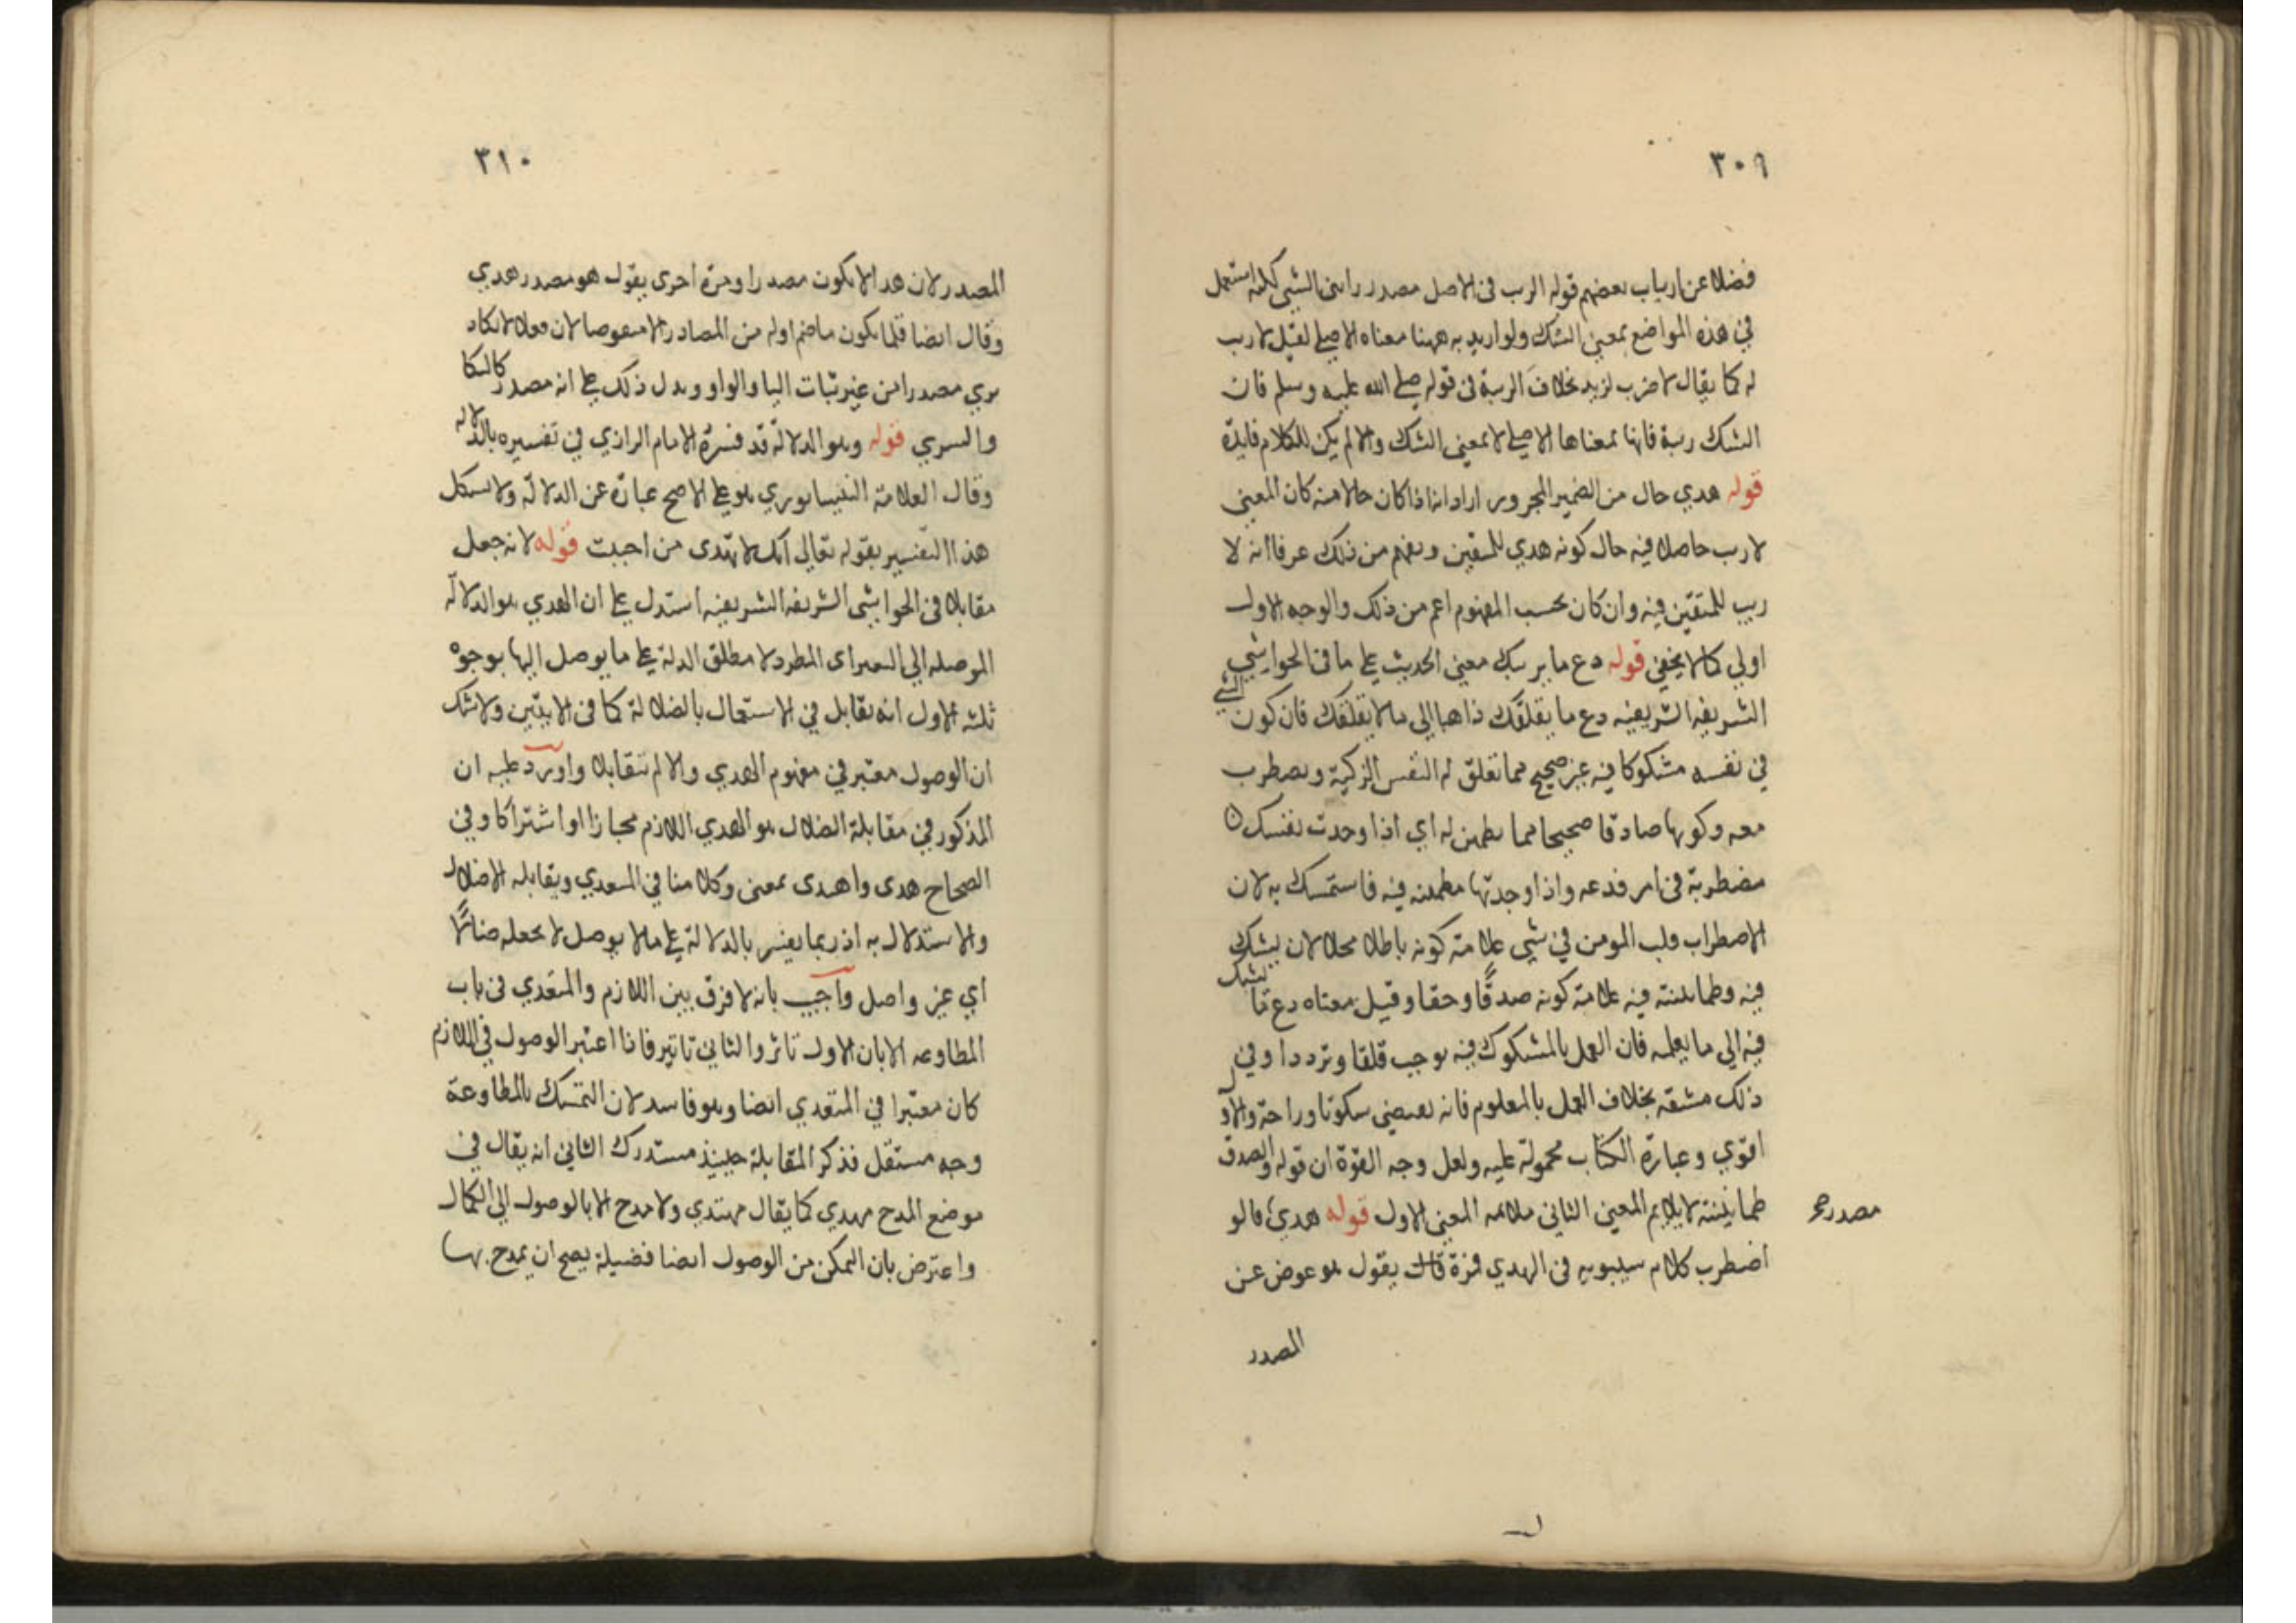 ٣٠٩
فضلا عن ارتياب بعضهم قوله الريب في الاصل مصدر رابني الشي لكنه استعمل
في هذه المواضع بمعني الشك ولو اريد به ههنا معناه الاصلي لقيل لا ريب
له كما يقال لا ضرب لزيد بخلاف الريبة في قوله صلي الله عليه وسلم فان
الشك ريبة فانها بمعناها الاصلي لا بمعني الشك والا لم يكن للكلام فايدة
قوله هدي حال من الضمير المجرور اراد انه اذا كان حالا منه كان المعني
لا ريب حاصلا فيه حال كونه هدي للمتقين ويفهم من ذلك عرفا انه لا
ريب للمتقين فيه وان كان بحسب المفهوم اعم من ذلك والوجه الاول
اولي كما لا يخفي قوله دع ما يريبك معني الحديث علي ما في الحواشي
الشريفة الشريفيه دع ما يقلقك ذاهبا الي ما لا يقلقك فان كون الشي
في نفسه مشكوكا فيه غير صحيح مما تقلق له النفس الزكية وتضطرب
معه وكونها صادقا صحيحا مما تطمئن له اي اذا وجدت نفسك
مضطربة في امر فدعه واذا وجدتها مطمئنه فيه فاستمسك به لان
الاضطراب قلب المومن في شي علامة كونه باطلا محلا لان يشك
فيه وطمانينته فيه علامة كونه صدقا وحقا وقيل معناه دع ما يشك
فيه الي ما يعلمه فان العمل بالمشكوك فيه يوجب قلقا وترددا وفي
ذلك مشقة بخلاف العمل بالمعلوم فانه يقتضي سكونا وراحة والاول
اقوي وعبارة الكتاب محمولة عليه ولعل وجه القوة ان قوله والصدق
طمانينته لا يلايم المعني الثاني ملائمه المعني الاول قوله هدي قالو
مصدر
اضطرب كلام سيبويه في الهدي فمرة قال يقول هو عوض عن
المصدر
٣١٠
المصدر لان هدا لا يكون مصدرا ومرة اخرى يقول هو مصدر هدي
وقال ايضا قلما يكون ما ضم اوله من المصادر الا منقوصا لان فعلا لا تكاد
يري مصدرا من غير ثبات اليا والواو ويدل ذلك علي انه مصدر كالبكا
والسري قوله وهو الدلالة قد فسره الامام الرازي في تفسيره بالدلالة
وقال العلامة النيسابوري هو علي الاصح عبارة عن الدلالة ولا يشكل
هذا التفسير بقوله تعالي انك لا تهدى من احببت قوله لانه جعل
مقابلا في الحواشي الشريفة الشريفيه استدل علي ان الهدي هو الدلالة
الموصله الي المطلوب لا مطلق الدلة علي ما يوصل اليها بوجوه
ثلثه الاول انه يقابل في الاستعمال بالضلالة كما في الايتين ولا شك
ان الوصول معتبر في مفهوم الهدي والا لم يتقابلا واورد عليه ان
المذكور في مقابلة الضلال هو الهدي اللازم مجازا او اشتراكا وفي
الصحاح هدى واهدى بمعنى وكلامنا في المتعدي ويقابله الاضلال
والاستدلال به اذ ربما يفسر بالدلالة علي ما لا يوصل لا بجعله ضالا
اي غير واصل واجيب بانه لا فرق بين اللازم والمتعدي في باب
المطاوعه الا بان الاول تاثر والثاني تاثير فاذا اعتبر الوصول في اللازم
كان معتبرا في المتعدي ايضا وهو فاسد لان التمسك بالمطاوعة
وجه مستقل فذكر المقابلة حينيذ مستدرك الثاني انه يقال في
موضع المدح مهدي كما يقال مهتدي ولا مدح الا بالوصول الي الكمال
واعترض بان التمكن من الوصول ايضا فضيلة يصح ان يمدح بها